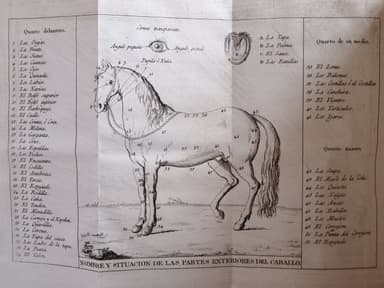 Quarto delantero.
1 Las Orejas
2 La Frente
3 Las Sienes
4 Las Cuencas
5 Los Ojos
6 La Quixada
7 Los Labios
8 Las Narices
9 El Belfo superior
10 El Belfo inferior
11 El Barboquejo
12 El Cuello
13 Las Crines, ó Crin
14 La Melena
15 La Garganta
16 La Cruz
17 Las Espaldas
18 El Pecho
19 El Encuentro
20 El Codillo
21 El Antebrazo
22 El
23 El Espejuelo
24 La Rodilla
25 La Caña
26 El Tendon
27 El Menudillo
28 La Cerneja y el Espolon
29 La Quartilla
30 La Corona
31 La Tapa del casco
32 Los Lados de la tapa
33 La
34 El Talon
Cornea transparente
Angulo pequeño
Angulo
Pupila ó Niña
a La Tapa
b La Palma
c El Sauco
d Las Ranillas
Quarto de en medio.
35 El Lomo
36 Los Riñones
37 Las Costillas ó el Costillar
38 La Cinchera
39 El Vientre
40 Los Testiculos
41 Los Ijares
Quarto trasero.
42 La Grupa
43 El Maslo de la Cola
44
45 Las Nalgas
46 Las Ancas
47 La Babilla
48 Los Muslos
49 El Corvejon
50 La Punta del Corvejon
51 El Espejuelo
NOMBRE Y SITUACION DE LAS PARTES EXTERIORES DEL CABALLO